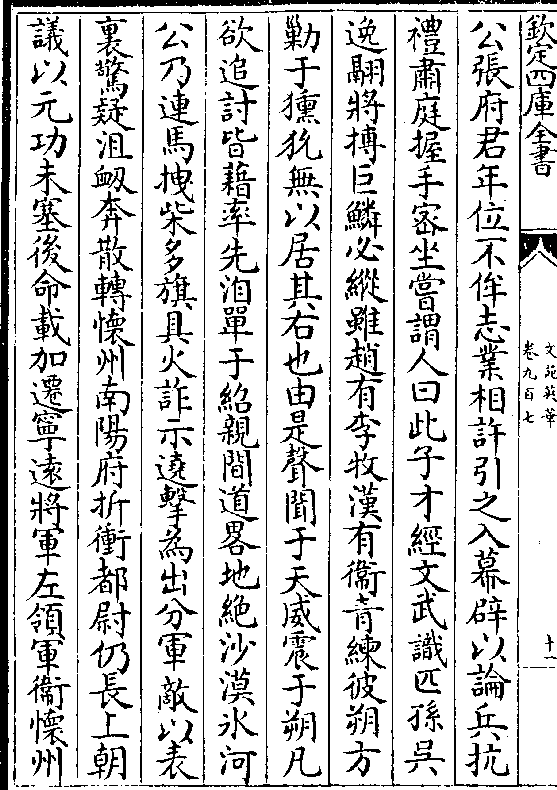 欽定四庫全書
文苑英華
卷九百七
十一
公張府君年位不侔志業相許引之入幕辟以論兵抗
禮肅庭握手密坐嘗謂人曰此子才經文武識匹孫吳
逸翮將摶巨鱗必縱雖趙有李牧漢有衞青練彼朔方
勦于玁狁無以居其右也由是聲聞于天威震于朔凡
欲追討皆藉率先洎單于紿親間道畧地絶沙漠氷河
公乃連馬拽柴多旗具火詐示遶擊為出分軍敵以表
裏驚疑沮衂奔散轉懷州南陽府折衝都尉仍長上朝
議以元功未塞後命載加遷寧遠將軍左領軍衞懷州